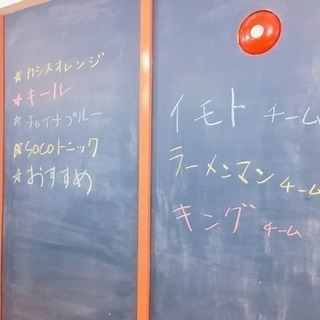 ☆カシスオレンジ
☆キール
☆チャイナブルー
☆SOCOトニック
☆おすすめ
イモトチーム
ラーメンマンチーム
キングチーム